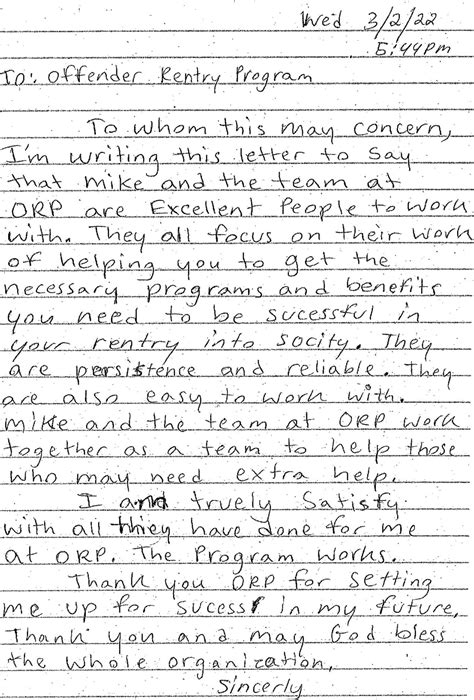 Wed 3/2/22
5:44pm
To: Offender Rentry Program
To whom this may concern,
I'm writing this letter to say
that mike and the team at
ORP are Excellent People to work
with. They all focus on their work
of helping you to get the
necessary programs and benefits
you need to be sucessful in
your rentry into socity. They
are persistence and reliable. They
are also easy to work with.
mike and the team at ORP work
together as a team to help those
who may need extra help.
I and truely Satisfy
with all they have done for me
at ORP. The Program works.
Thank you ORP for setting
me up for sucess in my future,
Thank you and may God bless
the whole organization,
Sincerly